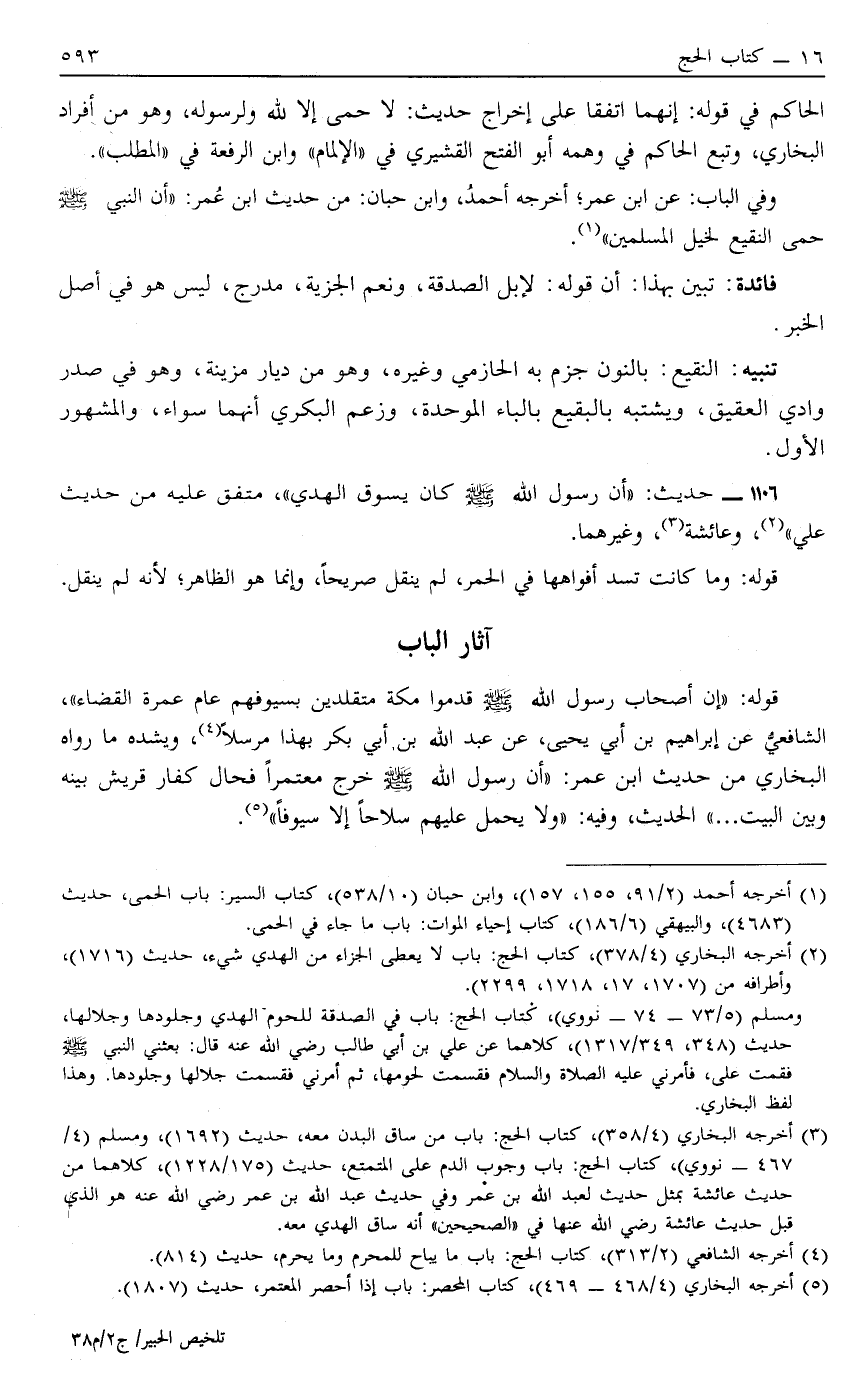 ١٦ ـ كتاب الحج ٥٩٣
الحاكم في قوله: إنهما اتفقا على إخراج حديث: لا حمى إلا لله ولرسوله، وهو من أفراد
البخاري، وتبع الحاكم في وهمه أبو الفتح القشيري في «الإلمام» وابن الرفعة في «المطلب».
وفي الباب: عن ابن عمر؛ أخرجه أحمدُ، وابن حبان: من حديث ابن عُمر: «أن النبي ﷺ
حمى النقيع لخيل المسلمين»(١).
فائدة: تبين بهذا: أن قوله: لإبل الصدقة، ونعم الجزية، مدرج، ليس هو في أصل
الخبر.
تنبيه: النقيع: بالنون جزم به الحازمي وغيره، وهو من ديار مزينة، وهو في صدر
وادي العقيق، ويشتبه بالبقيع بالباء الموحدة، وزعم البكري أنهما سواء، والمشهور
الأول.
١١٠٦ ـ حديث: «أن رسول الله ﷺ كان يسوق الهدي»، متفق عليه من حديث
علي»(٢)، وعائشة(٣)، وغيرهما.
قوله: وما كانت تسد أفواهها في الحمر، لم ينقل صريحاً، وإنما هو الظاهر؛ لأنه لم ينقل.
آثار الباب
قوله: «إن أصحاب رسول الله ﷺ قدموا مكة متقلدين بسيوفهم عام عمرة القضاء»،
الشافعيُّ عن إبراهيم بن أبي يحيى، عن عبد الله بن أبي بكر بهذا مرسلاً(٤)، ويشده ما رواه
البخاري من حديث ابن عمر: «أن رسول الله ﷺ خرج معتمراً فحال كفار قريش بينه
وبين البيت...» الحديث، وفيه: «ولا يحمل عليهم سلاحاً إلا سيوفاً»(٥).
(١) أخرجه أحمد (٩١/٢، ١٥٥، ١٥٧)، وابن حبان (٥٣٨/١٠)، كتاب السير: باب الحمى، حديث
(٤٦٨٣)، والبيهقي (١٨٦/٦)، كتاب إحياء الموات: باب ما جاء في الحمى.
(٢) أخرجه البخاري (٣٧٨/٤)، كتاب الحج: باب لا يعطى الجزاء من الهدي شيء، حديث (١٧١٦)،
وأطرافه من (١٧٠٧، ١٧، ١٧١٨، ٢٢٩٩).
ومسلم (٧٣/٥ ـ ٧٤ ـ نووي)، كتاب الحج: باب في الصدقة للحوم الهدي وجلودها وجلالها،
حديث (٣٤٨، ١٣١٧/٣٤٩)، كلاهما عن علي بن أبي طالب رضي الله عنه قال: بعثني النبي ﷺ
فقمت على، فأمرني عليه الصلاة والسلام فقسمت لحومها، ثم أمرني فقسمت جلالها وجلودها. وهذا
لفظ البخاري.
(٣) أخرجه البخاري (٣٥٨/٤)، كتاب الحج: باب من ساق البدن معه، حديث (١٦٩٢)، ومسلم (٤/
٤٦٧ ـ نووي)، كتاب الحج: باب وجوب الدم على المتمتع، حديث (١٢٢٨/١٧٥)، كلاهما من
حديث عائشة بمثل حديث لعبد الله بن عمر وفي حديث عبد الله بن عمر رضي الله عنه هو الذي
قبل حديث عائشة رضي الله عنها في «الصحيحين» أنه ساق الهدي معه.
(٤) أخرجه الشافعي (٣١٣/٢)، كتاب الحج: باب ما يباح للمحرم وما يحرم، حديث (٨١٤).
(٥) أخرجه البخاري (٤٦٨/٤ ـ ٤٦٩)، كتاب المحصر: باب إذا أحصر المعتمر، حديث (١٨٠٧).
تلخيص الحبير/ ج٢/م٣٨